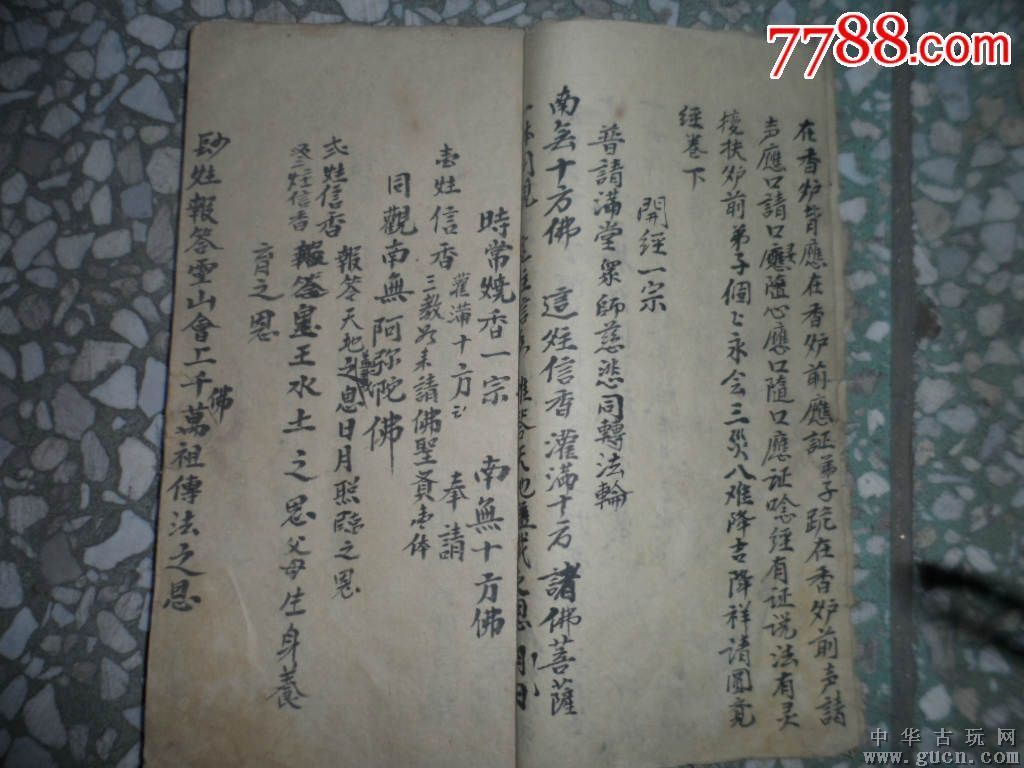 7788.com
在香炉背應在香炉前應証弟子疏在香炉前声請
声應口請口應隨心應口隨口應证唸经有证说法有灵
挠扶炉前弟子個个永会三災八难降吉降祥请圓竟
经卷下
開經一宗
普請滿堂眾師慈悲同轉法輪
南無十方佛 這炷信香灌滿十方 諸佛菩薩
時常燒香一宗 南無十方佛
壹炷信香 灌滿十方 奉請
三教如来諸佛聖賢壹体
同觀南無阿弥陀佛
弍炷信香 報答天地 恩日月照臨之恩
叁炷信香報答皇王水土之恩父母生身養
育之恩
炷報答灵山會上千佛萬祖傳法之恩
中华古玩网
www.gucn.com